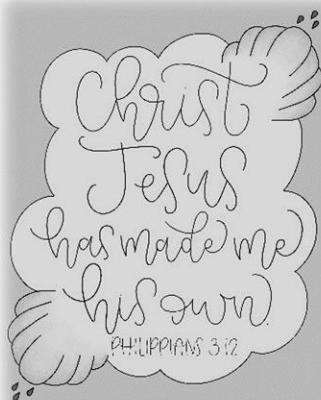 Christ
Jesus
has made me
his own.
PHILIPPIANS 3:12